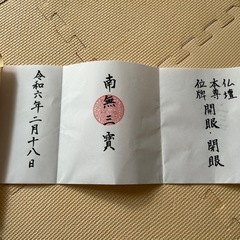 仏壇
本尊 開眼・閉眼
位牌
南無三寳
令和六年二月十八日